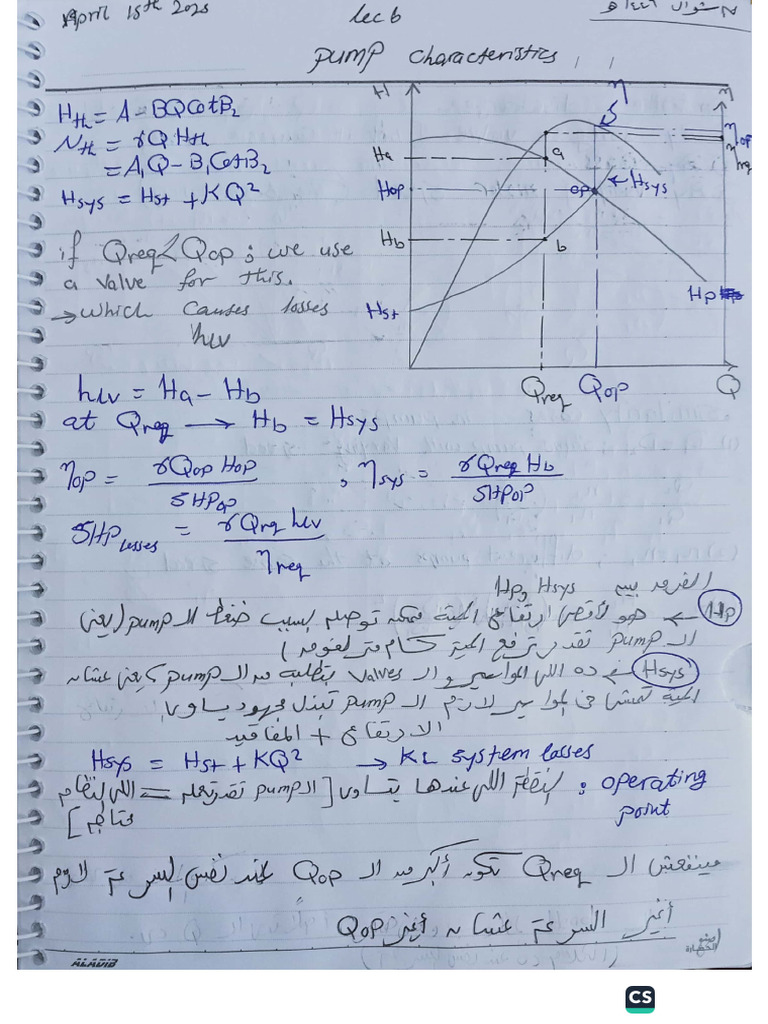 April 15th 2025
Lec 6
١٧ شوال ١٤٤٦هـ
pump characteristics
H_th = A - BQCotB₂
N_th = γQ H_th
= A₁Q - B₁CotB₂
H_sys = H_st + KQ²
if Qreq < Qop ; we use
a valve for this.
→ which causes losses
hLv
H
η
η
Ha
a
ηop
ηrq
Hop
op
Hsys
Hb
b
Hp
Hst
Qreq
Qop
Q
hLv = Ha - Hb
at Qreq → Hb = Hsys
ηop = γQop Hop / SHPop ; ηsys = γQreq Hb / SHPop
SHP losses = γQrq hLv / ηreq
الفرق بين Hsys و Hp
Hp ← هو لأقصى ارتفاع المية ممكن توصله بسبب ضغط الـ pump (يعني
الـ pump تقدر ترفع المية كام متر لفوق)
Hsys ← ده اللي المواسير و الـ valves بتطلبه من الـ pump يعني عشان
المية تمشي في المواسير لازم الـ pump تبذل مجهود يساوي
الارتفاع + المفاقيد
Hsys = Hst + KQ² → KL system losses
operating point : النقطة اللي عندها يتساوى [الـ pump تقدر تعمله = اللي النظام
محتاجه]
مينفعش الـ Qreq تكون أكبر من الـ Qop عند نفس السرعة لازم
أغير السرعة عشان أغير Qop
ALADIB
CS